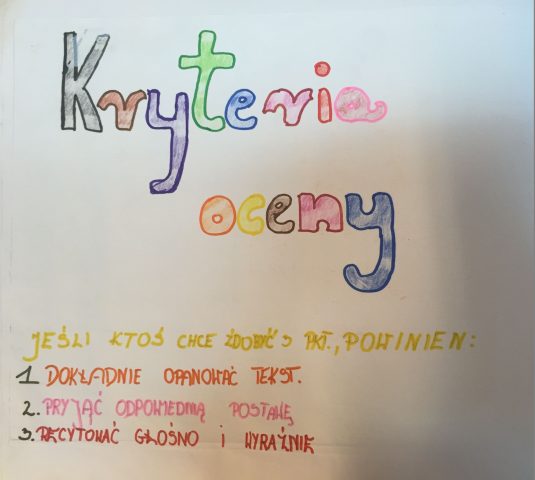 Kryteria
oceny
JEŚLI KTOŚ CHCE ZDOBYĆ 5 PKT., POWINIEN:
1. DOKŁADNIE OPANOWAĆ TEKST.
2. PRYJĄĆ ODPOWIEDNIĄ POSTAWĘ
3. RECYTOWAĆ GŁOŚNO I WYRAŹNIE